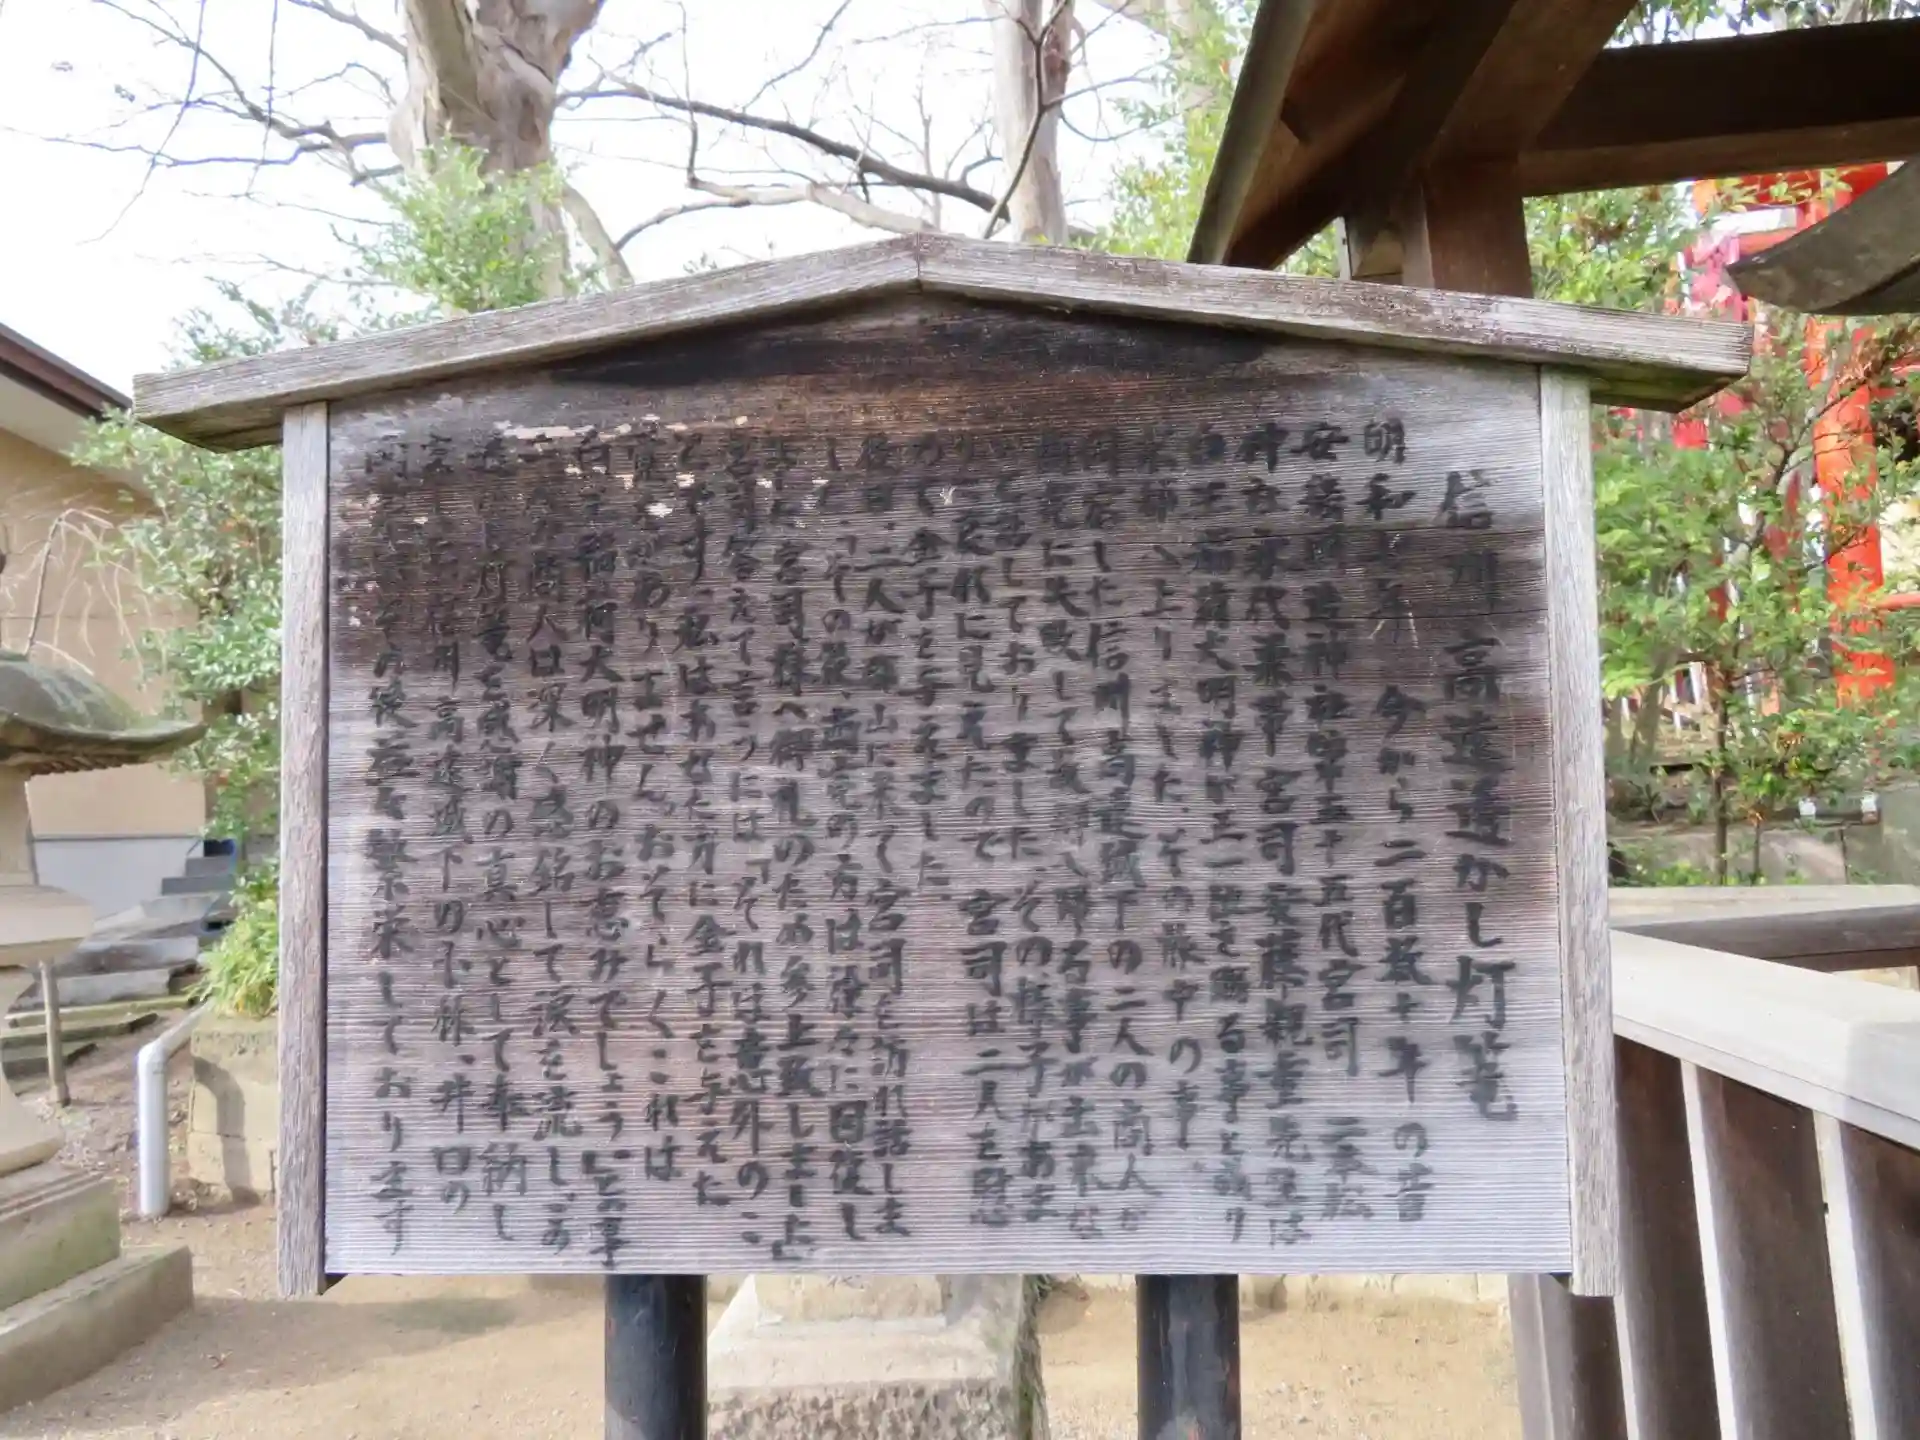 信州高遠透かし灯篭
明和七年 今から二百数十年の昔
安積国造神社第五十五代宮司 二本松
神社永代兼帯宮司安藤親重先生は
白王稲荷大明神が正一位を賜る事と成り
京都へ上りました、その旅中の事
同宿した信州高遠城下の二人の商人が
商売に失敗して故郷へ帰る事が出来な
いと話しておりました、その様子があま
りに哀れに見えたので宮司は二人を慰
めて金子を与えました。
後日、二人が郡山に来て宮司を訪れ話しま
した、「その後、商売の方は徐々に回復し
ました宮司様へ御礼のため参上致しました」
宮司答えて言うには「それは意外のこ
とです、私はあなた方に金子を与えた
覚えがありません、おそらくこれは
白王稲荷大明神のお恵みでしょう」との事
二人の商人は深く感銘して涙を流し、この
透かし灯篭を感謝の真心として奉納し
ました 信州高遠城下の小林、井口の
両家はその後益々繁栄しております